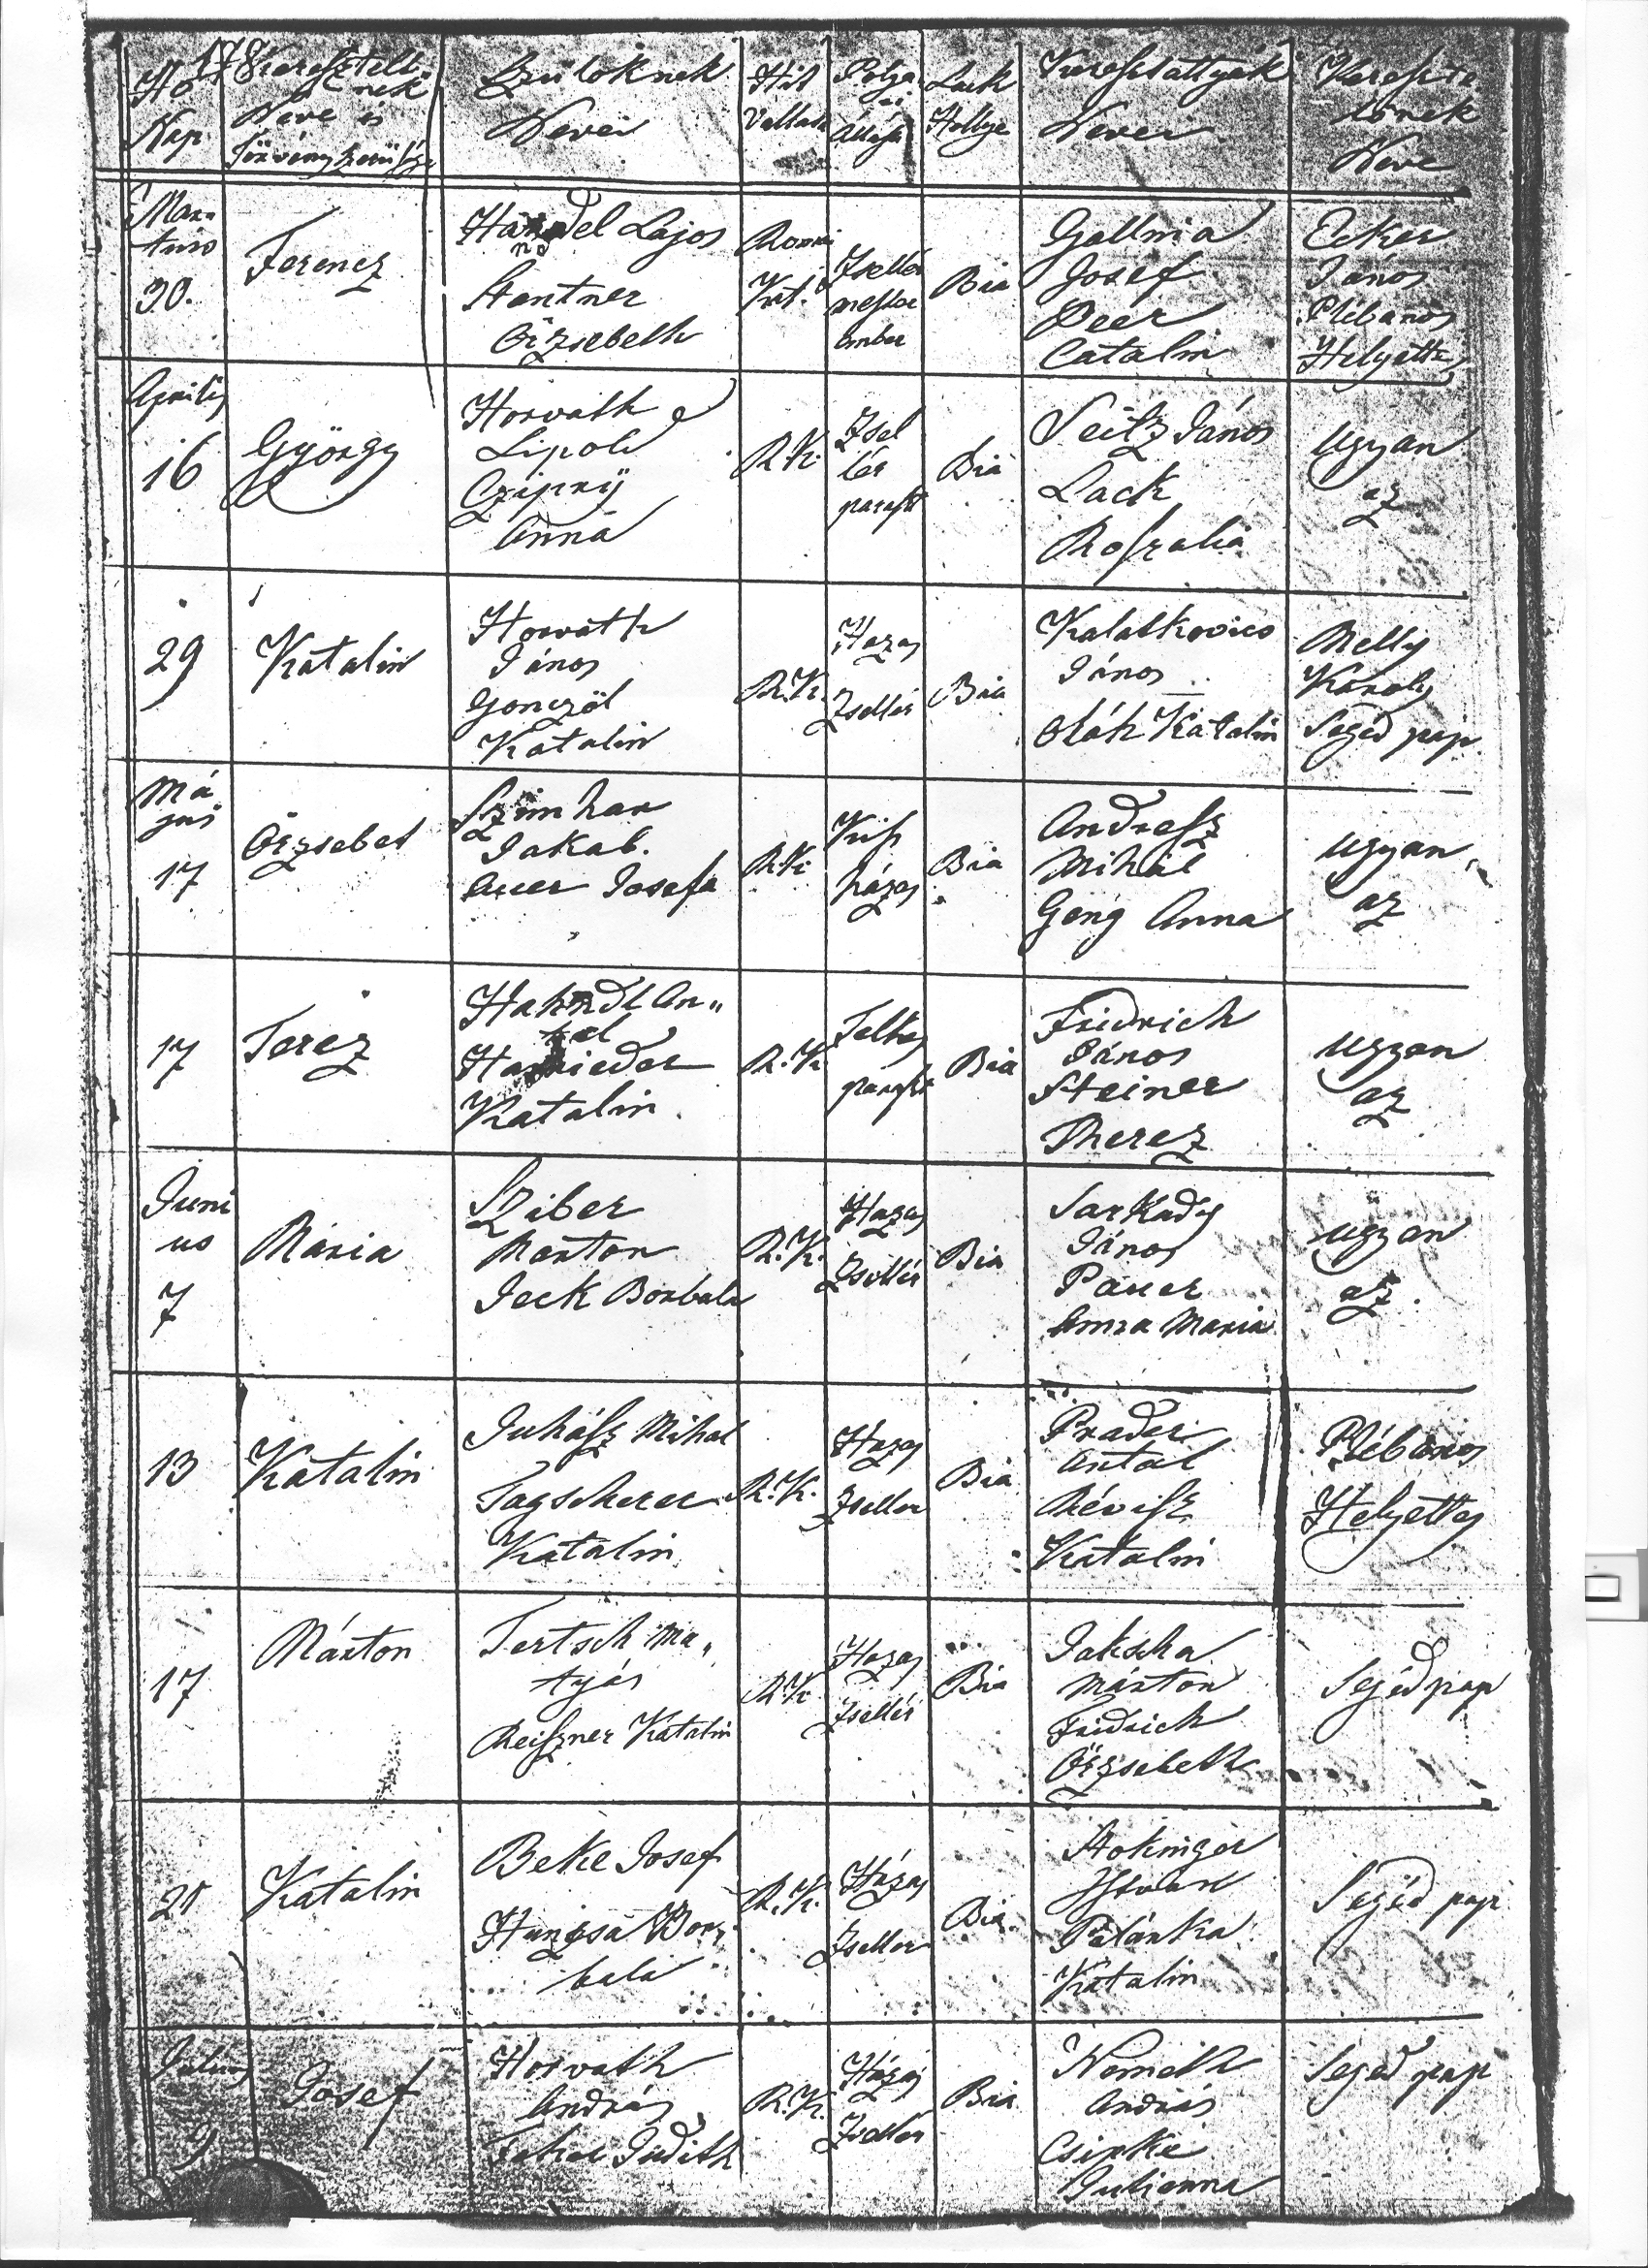 Hó
Nap.
Kereszteltnek
Neve és
Törvényszerüsége
Szülöknek
Nevei
Hit
Vallása
Polgári
Állása
Lack
Hellye
Keresztattyák
Nevei
Keresztelönek
Neve
Martius
30.
Ferencz
Handel Lajos
Stantner
Örzsebeth
Romai
Kat.
Zsellér
mester
ember
Bia
Gallina
Josef
Peer
Catalin
Ecker
János
Plébános
Helyettes
Aprilis
16
György
Horváth
Lipold
Czipry
Anna
R.K.
Zsel
lér
paraszt
Bia
Seitz János
Lack
Roszalia
ugyan
az
29
Katalin
Horváth
János
Gönczöl
Katalin
R.K.
Hazas
Zsellér
Bia
Kalatkovics
János
Oláh Katalin
Melly
Károly
Segéd pap.
Má
jus
17
Örzsebet
Szimhar
Jakab.
Auer Josefa
R.K.
Kis
házas
Bia
Andresz
Mihál
Geng Anna
ugyan
az
17
Terez
Hahndl An„
tal
Katalin.
R.K.
Telkes
paraszt
Bia
Fridrich
János
Steiner
Therez
ugyan
az
Juni
us
7
Mária
Sziber
Marton
Jeck Borbala
R.K.
Hazas
Zsellér
Bia
Sarkady
János
Pauer
Anna Maria
ugyan
az.
13
Katalin
Juhász Mihal
Tagscherer
Katalin
R.K.
Házas
Zseller
Bia
Prader
Antal
Révész
Katalin
Plébános
Helyettes
17
Márton
Tertsch Ma„
tyás
Reiszner Katalin
R.K.
Hazas
Zsellér
Bia
Jakscha
Márton
Fridrich
Örzsebeth
Segéd pap
Katalin
Beke Josef
Hungsa Bor„
bala
R.K.
Házas
Zseller
Bia.
Stokinger
Istvan
Palánka
Katalin
Segéd pap
Julius
9
Josef
Horvath
András
Feher Judith
R.K.
Házas
Zsellér
Bia
Nemeth
András
Csipke
Julianna
Segéd pap